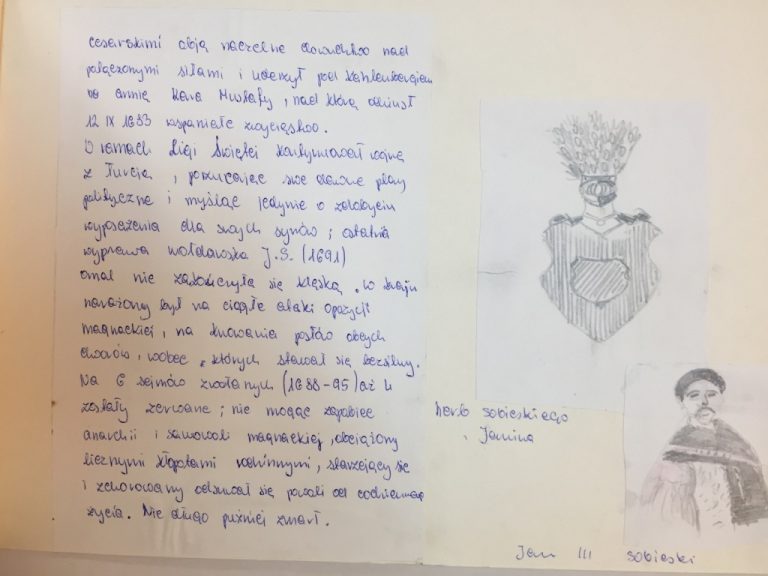 cesarskimi objął naczelne dowództwo nad
połączonymi siłami i uderzył pod Kahlenbergiem
na armię Kara Mustafy, nad którą odniósł
12 IX 1683 wspaniałe zwycięstwo.
W ramach Ligi Świętej kontynuował wojnę
z Turcją, porzucając swe dawne plany
polityczne i myśląc jedynie o zdobyciu
wyposażenia dla swych synów; ostatnia
wyprawa mołdawska J.S. (1691)
omal nie zakończyła się klęską. W kraju
narażony był na ciągłe ataki opozycji
magnackiej, na knowania posłów obcych
dworów, wobec których stawał się bezsilny.
Na 6 sejmów zwołanych (1688-95) aż 4
zostały zerwane; nie mogąc zapobiec
anarchii i samowoli magnackiej, obciążony
licznymi kłopotami rodzinnymi, starzejący się
i schorowany odsuwał się powoli od codziennego
życia. Nie długo później zmarł.
herb sobieskiego
Janina
Jan III sobieski